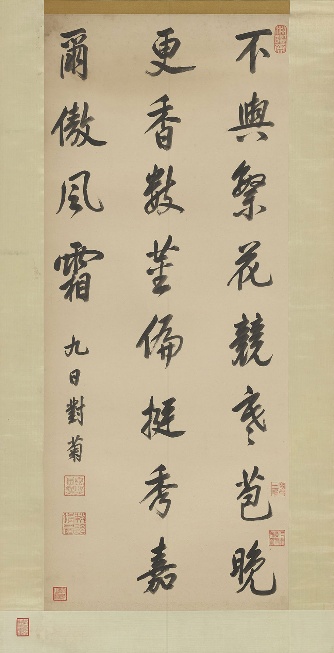 不與繁花競寒苞晚
更香數莖偏挺秀嘉
爾傲風霜 九日對菊